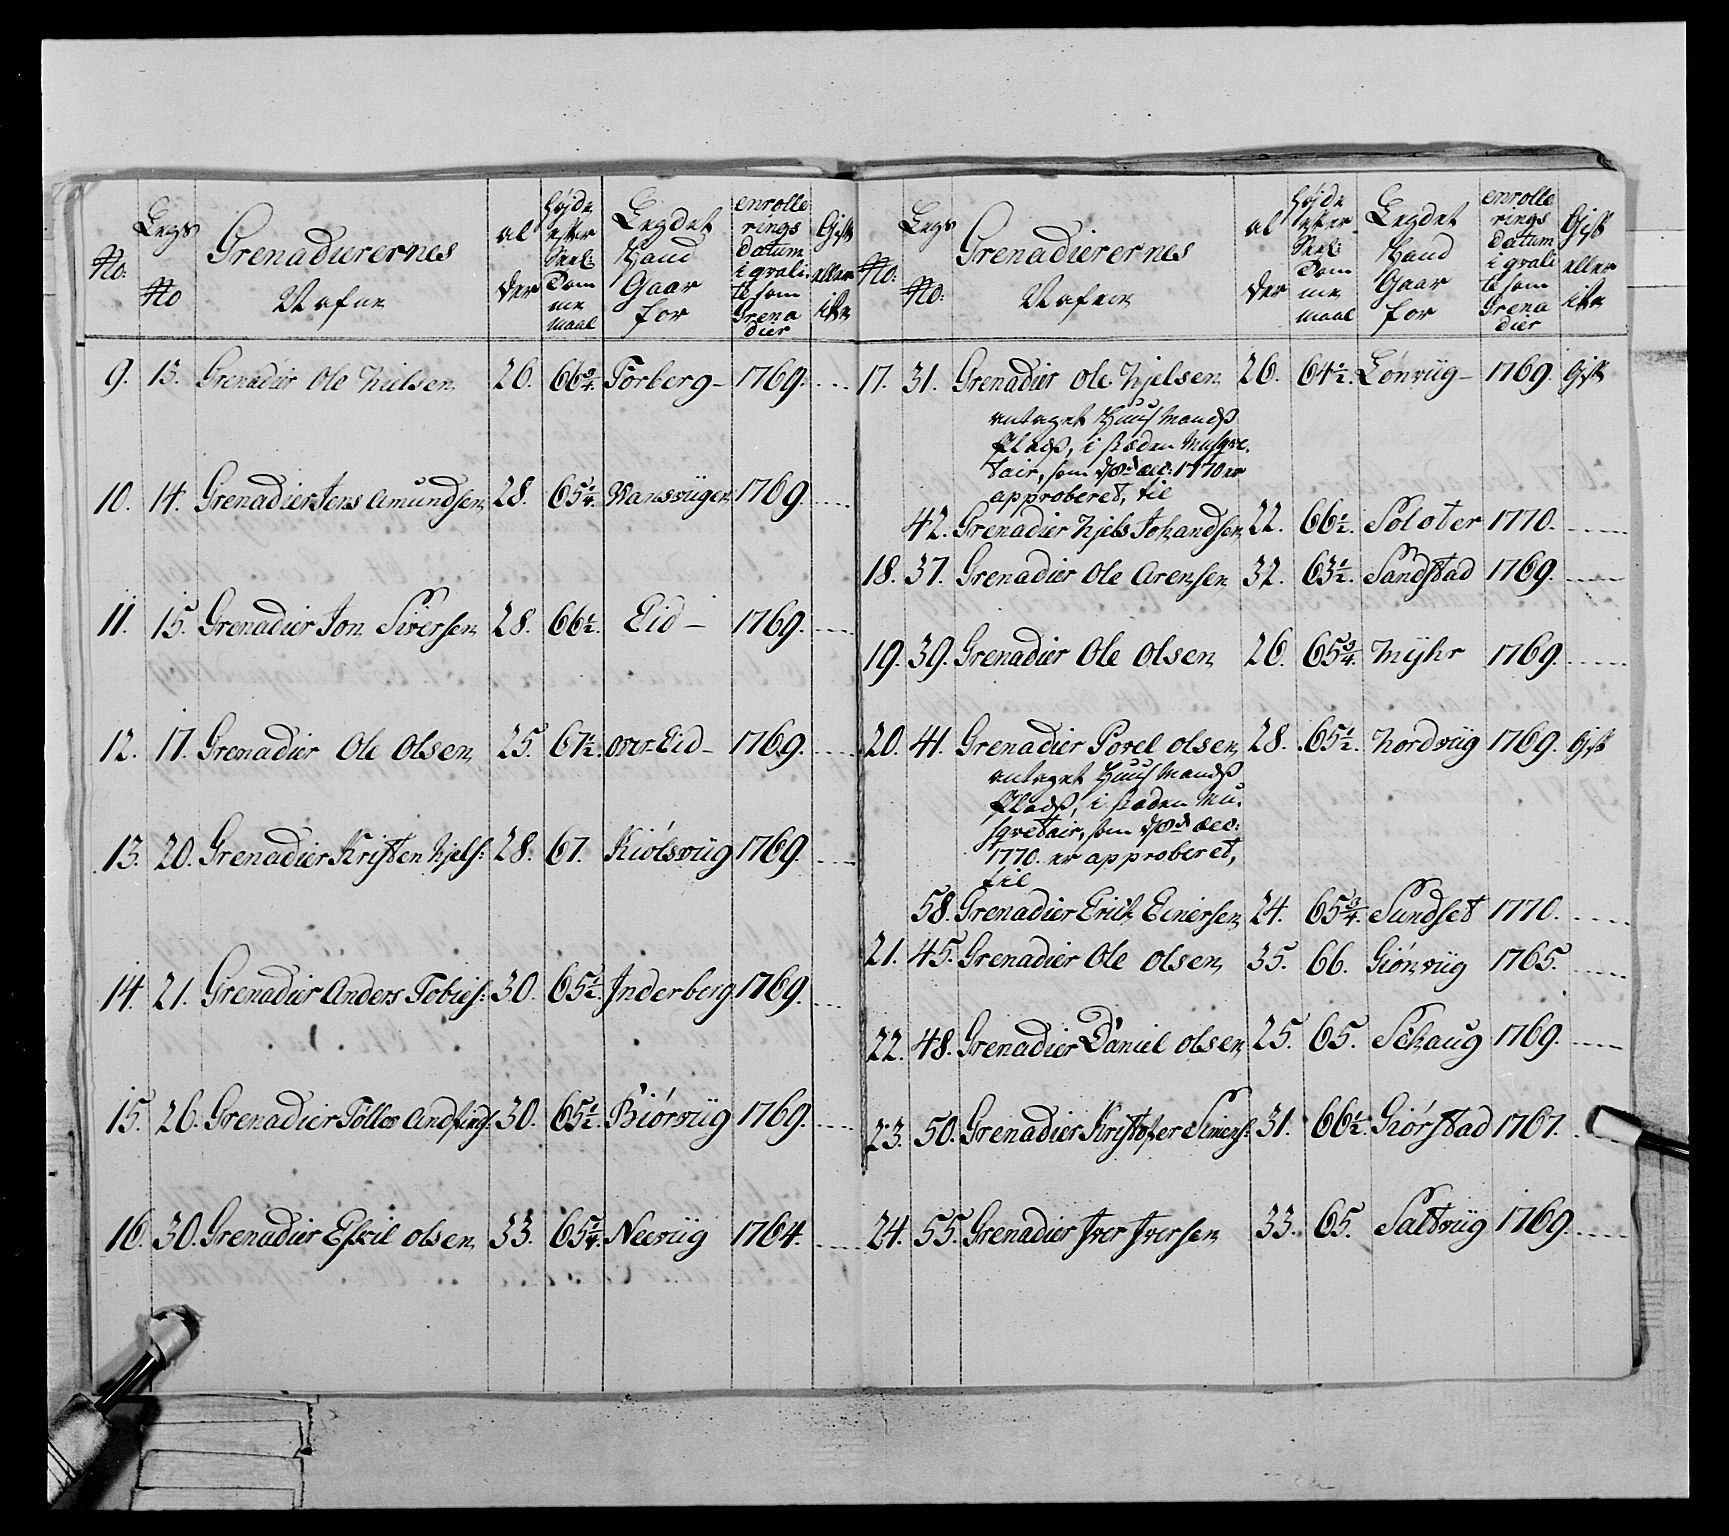 No: Legs No Grenadierernes Nafne al der højde efter Siel: Dom me maal Legdet Hand Gaar for enrolle rings datum i qvali te som Grena dier Gift eller ikke
9. 13. Grenadier Ole Nielsen 26. 66 3/4. Forberg– 1769. ....
10. 14. Grenadier Jens Amundsen 28. 65 1/4. 1769. ....
11. 15. Grenadier Jon Siversen 28. 66 1/2. Eid– 1769. ....
12. 17. Grenadier Ole Olsen 25. 67 1/2. over Eid– 1769. ....
13. 20. Grenadier Kristen Njels: 28. 67. Kiølsviig 1769. ....
14. 21. Grenadier Anders Tobies: 30. 65 1/2. Inderberg 1769. ....
15. 26. Grenadier Tølløv 30. 65 1/2. Biørviig 1769. ....
16. 30. Grenadier Eskil Olsen 33. 65 1/4. Neeviig 1764. ....
No: Legs No: Grenadierernes Nafne al der højde efter Siel: Dom me maal Legdet Hand Gaar for enrolle rings datum i qvali te som Grena dier Gift eller ikke
17. 31. Grenadier Ole Njelsen 26. 64 1/2. Lønviig– 1769. Gift
antaget Huus Mands
Plads, i steden Musqve.
tair, som dec: 1770 er
approberet, til
42. Grenadier Njels Johandsen 22. 66 1/2. Soloter 1770. ....
18. 37. Grenadier Ole Arensen 32. 63 1/2. Sandstad 1769. ....
19. 39. Grenadier Ole Olsen 26. 65 3/4. Myhr 1769. ....
20. 41. Grenadier Povel Olsen 28. 65 1/2. Nordviig 1769. Gift
antaget Huus Mands
Plads, i steden Mu.
sqvetair, som dec:
1770. er approberet,
til
58. Grenadier Erik Einersen 24. 65 3/4. Sundset 1770. ....
21. 45. Grenadier Ole Olsen 35. 66. Giønviig 1765. ....
22. 48. Grenadier Daniel Olsen 25. 65. Schaug 1769. ....
23. 50. Grenadier Kristofer Simens: 31. 66 1/2. Giørstad 1767. .
24. 55. Grenadier Iver Iversen 33. 65. Saltviig 1769. ....